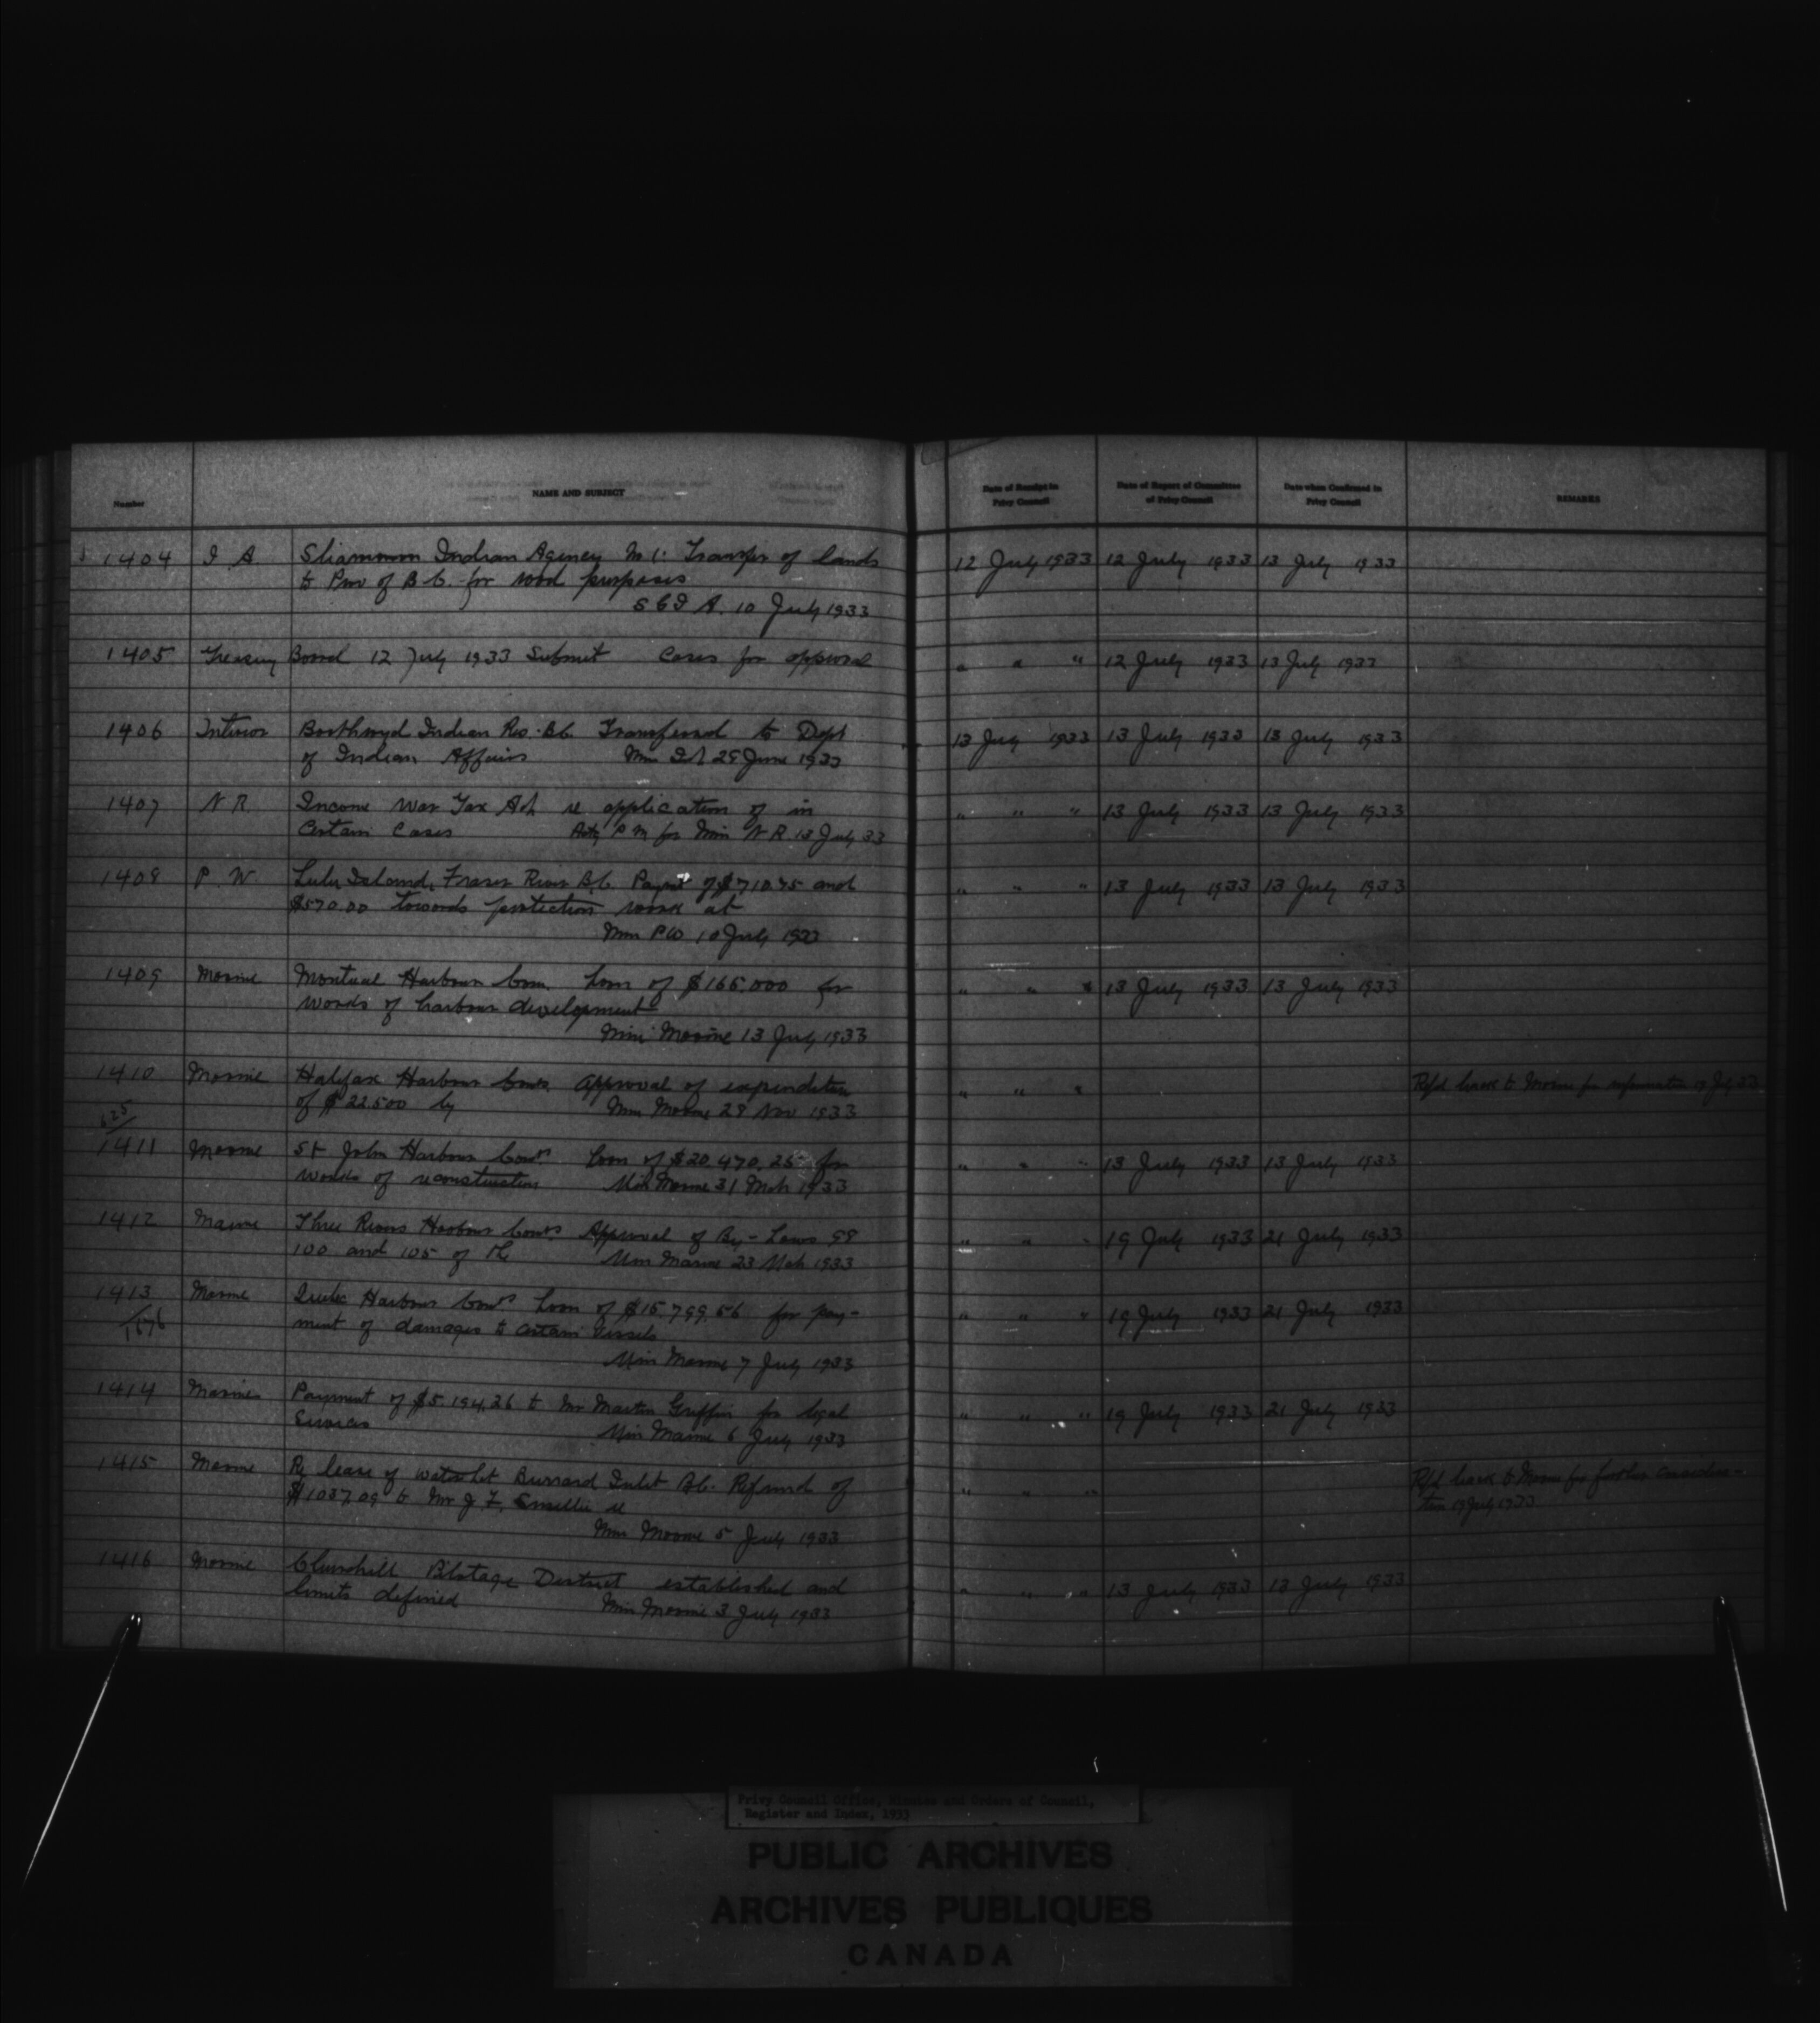 Number
NAME AND SUBJECT
Date of Receipt in Privy Council
Date of Report of Committee of Privy Council
Date when Confirmed in Privy Council
REMARKS
1404 I. A. Sliammon Indian Agency No 1. Transfer of lands 12 July 1933 12 July 1933 13 July 1933
to Prov of B C. for road purposes
S G I A. 10 July 1933
1405 Treasury Board 12 July 1933 Submit Cases for approval " " " 12 July 1933 13 July 1933
1406 Interior Indian Res. B.C. Transferred to Dept 13 July 1933 13 July 1933 13 July 1933
of Indian Affairs Min Int 29 June 1933
1407 N R. Income War Tax Act re application of in " " " 13 July 1933 13 July 1933
Certain Cases P M for Min N R 13 July 33
1408 P. W. Lulu Island, Fraser River B.C. Paymt of $710.75 and " " " 13 July 1933 13 July 1933
$570.00 towards protection work at
Min PW 10 July 1933
1409 Marine Montreal Harbour Com Loan of $165,000 for " " " 13 July 1933 13 July 1933
works of harbour development
Min Marine 13 July 1933
1410 Marine Halifax Harbour Comrs Approval of expenditure " " " Refd back to Marine for
of $22,500 by Min Marine 28 Nov 1933
625
1411 Marine St John Harbour Comrs Loan of $20,470.25 for " " " 13 July 1933 13 July 1933
works of reconstruction Min Marine 31 Mch 1933
1412 Marine Three Rivers Harbour Comrs Approval of By-Laws 98 " " " 19 July 1933 21 July 1933
100 and 105 of the Min Marine 23 Mch 1933
1413 Marine Quebec Harbour Comrs Loan of $15,799.56 for pay- " " " 19 July 1933 21 July 1933
/1576 ment of damages to certain vessels
Min Marine 7 July 1933
1414 Marine Payment of $5,194.26 to Mr Martin Griffin for legal " " " 19 July 1933 21 July 1933
Services Min Marine 6 July 1933
1415 Marine Re lease of waterlot Burrard Inlet B.C. Refund of " " " Refd back to Marine for further considera-
$1037.09 to Mr J. F. Smellie re tion 19 July 1933
Min Marine 5 July 1933
1416 Marine Churchill Pilotage District established and " " " 13 July 1933 13 July 1933
limits defined Min Marine 3 July 1933
Privy Council Office, Minutes and Orders of Council,
Register and Index, 1933
PUBLIC ARCHIVES
ARCHIVES PUBLIQUES
CANADA